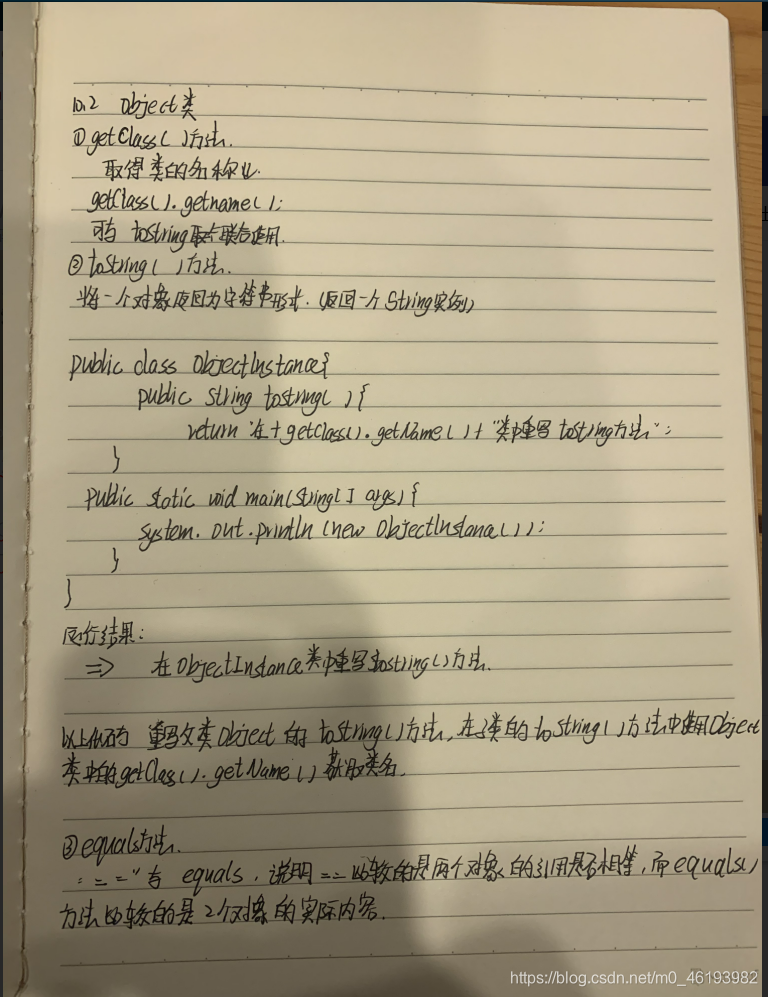 10.2 Object类
①getClass( )方法.
取得类的名称
getClass().getname();
可与 toString 联合使用.
②toString( )方法.
将一个对象返回为字符串形式.(返回一个String实例)
public class ObjectInstance{
public String toString( ){
return "在"+getClass().getName()+"类中重写toString方法";
}
public static void main(String[] args){
system.out.println(new ObjectInstance());
}
}
运行结果:
=> 在ObjectInstance类中重写toString()方法.
以上代码 重写父类Object的 toString()方法,在子类的toString()方法中使用Object
类中的getClass().getName()获取类名.
③equals方法.
"=="与 equals,说明==比较的是两个对象的引用是否相等,而equals()
方法比较的是2个对象的实际内容.
https://blog.csdn.net/m0_46193982